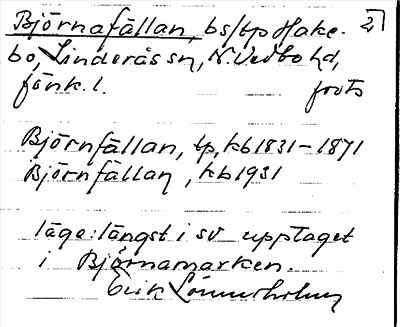 Björnafällan, bs/tp Hake- 2
bo, Linderås sn, N. Vedbo hd,
jönk. l. forts
Björnfällan, tp, kb 1831-1871
Björnfällan, kb 1931
läge: längst i sv upptaget
i Björnamarken.
Erik Lönnerholm